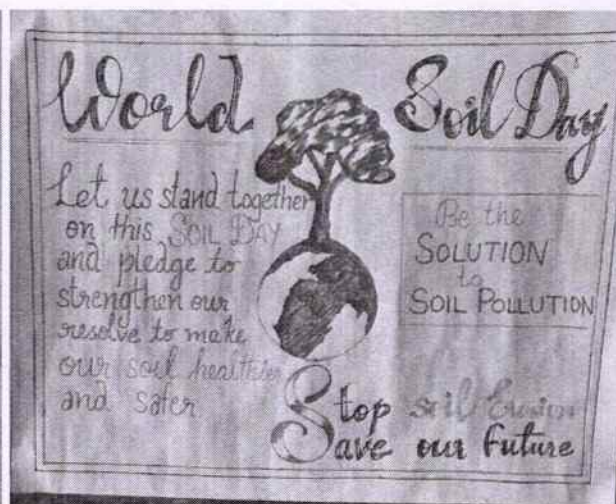 World Soil Day
Let us stand together
on this SOIL DAY
and pledge to
strengthen our
resolve to make
our soil healthier
and safer
Be the
SOLUTION
to
SOIL POLLUTION
Stop soil Erosion
Save our future